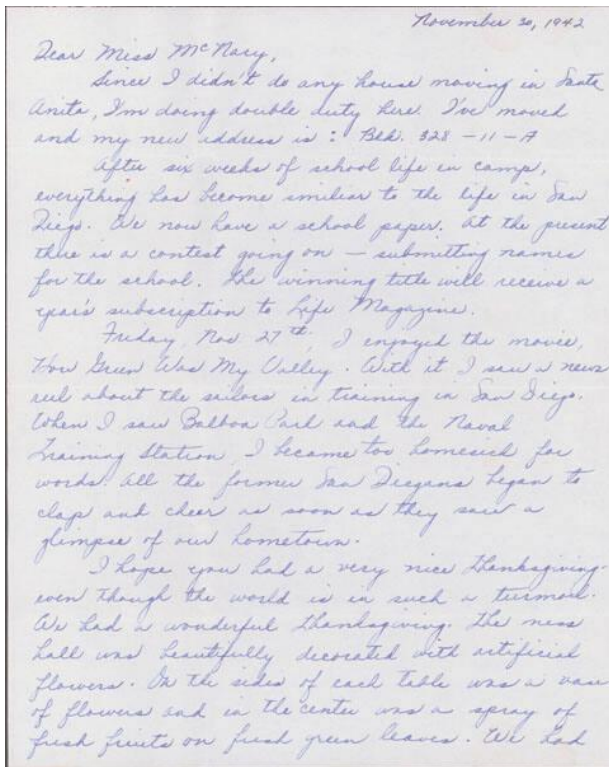 November 30, 1942
Dear Miss McNary,
Since I didn't do any house moving in Santa
Anita, I'm doing double duty here. I've moved
and my new address is : Blk. 328-11-A
After six weeks of school life in camp,
everything has become similiar to the life in San
Diego. We now have a school paper. At the present
there is a contest going on — submitting names
for the school. The winning title will receive a
year's subscription to Life Magazine.
Friday, Nov 27th, I enjoyed the movie,
How Green Was My Valley. With it I saw a news
reel about the sailors in training in San Diego.
When I saw Balboa Park and the Naval
Training Station, I became too homesick for
words. All the former San Diegans began to
clap and cheer as soon as they saw a
glimpse of our hometown.
I hope you had a very nice Thanksgiving.
even though the world is in such a turmoil.
We had a wonderful Thanksgiving. The mess
hall was beautifully decorated with artificial
flowers. On the sides of each table was a vase
of flowers and in the center was a spray of
fresh fruits on fresh green leaves. We had